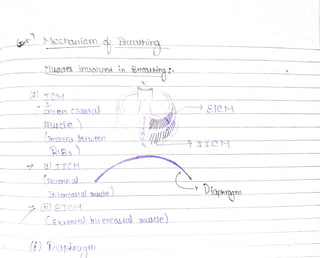 Mechanism of Breathing
Muscles involved in Breathing:-
(a) ICM
(Inter costal
muscle)
(Present between
Ribs)
EICM
IICM
→ (a) IICM
(Internal
Intercostal muscle)
Diaphragm
→ (b) EICM
(External Intercostal muscle)
(b) Diaphragm